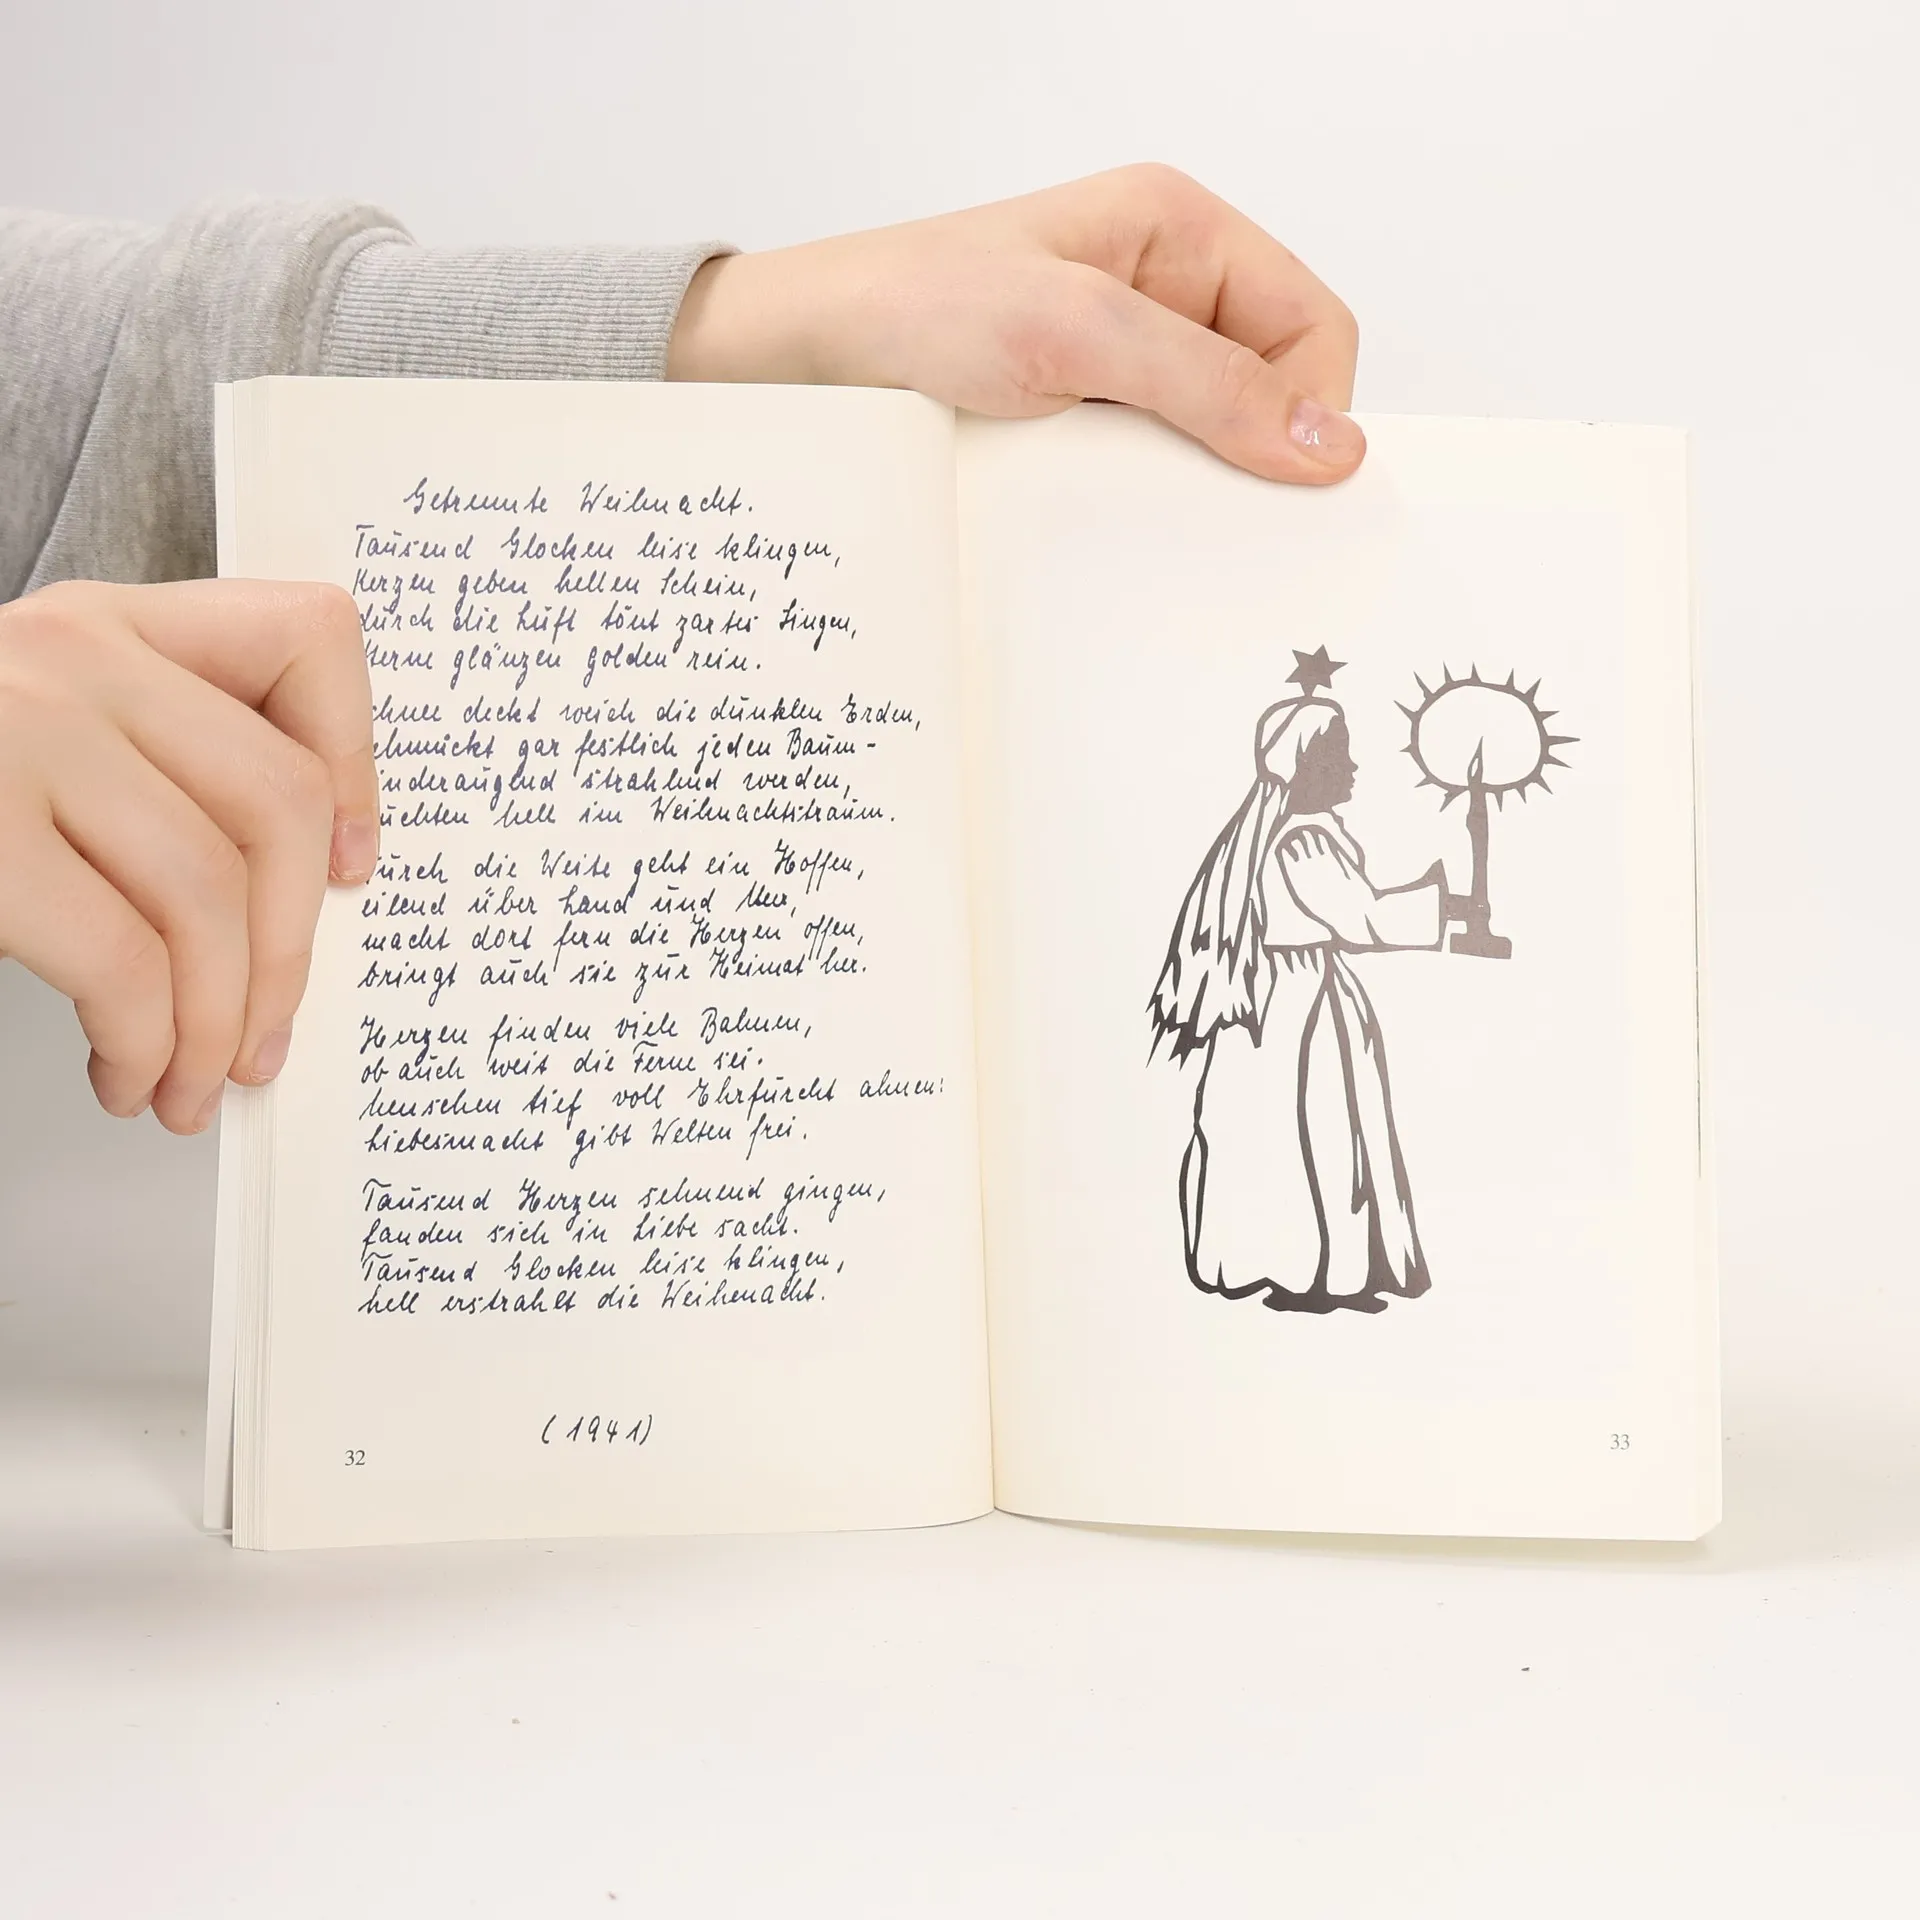 Getrennte Weihnacht.
Tausend Glocken leise klingen,
Kerzen geben hellen Schein,
durch die Luft tönt zartes Singen,
Sterne glänzen golden rein.
chnee deckt weich die dunklen Erden,
chmückt gar festlich jeden Baum -
inderaugend strahlend werden,
uchten hell im Weihnachtstraum.
Durch die Weite geht ein Hoffen,
eilend über Land und Meer,
macht dort fern die Herzen offen,
bringt auch sie zur Heimat her.
Herzen finden viele Bahnen,
ob auch weit die Ferne sei.
Menschen tief voll Ehrfurcht ahnen:
Liebesmacht gibt Welten frei.
Tausend Herzen sehnend gingen,
fanden sich in Liebe sacht.
Tausend Glocken leise klingen,
hell erstrahlt die Weihenacht.
(1941)
32
33